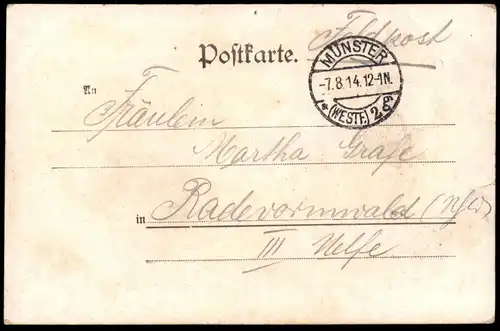 Feldpost
Postkarte.
MÜNSTER
-7.8.14.12-1N.
* (WESTF.) 2
An
Fräulein
Martha Grafe
in Radevormwald
III Uelfe